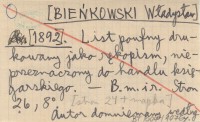 [BIEŃKOWSKI Władysław]
[1892]. List poufny dru-
kowany jako rękopism, nie-
przeznaczony do handlu księ-
garskiego. — B. m. i r. Stron
26, 8°
Autor domniemany według